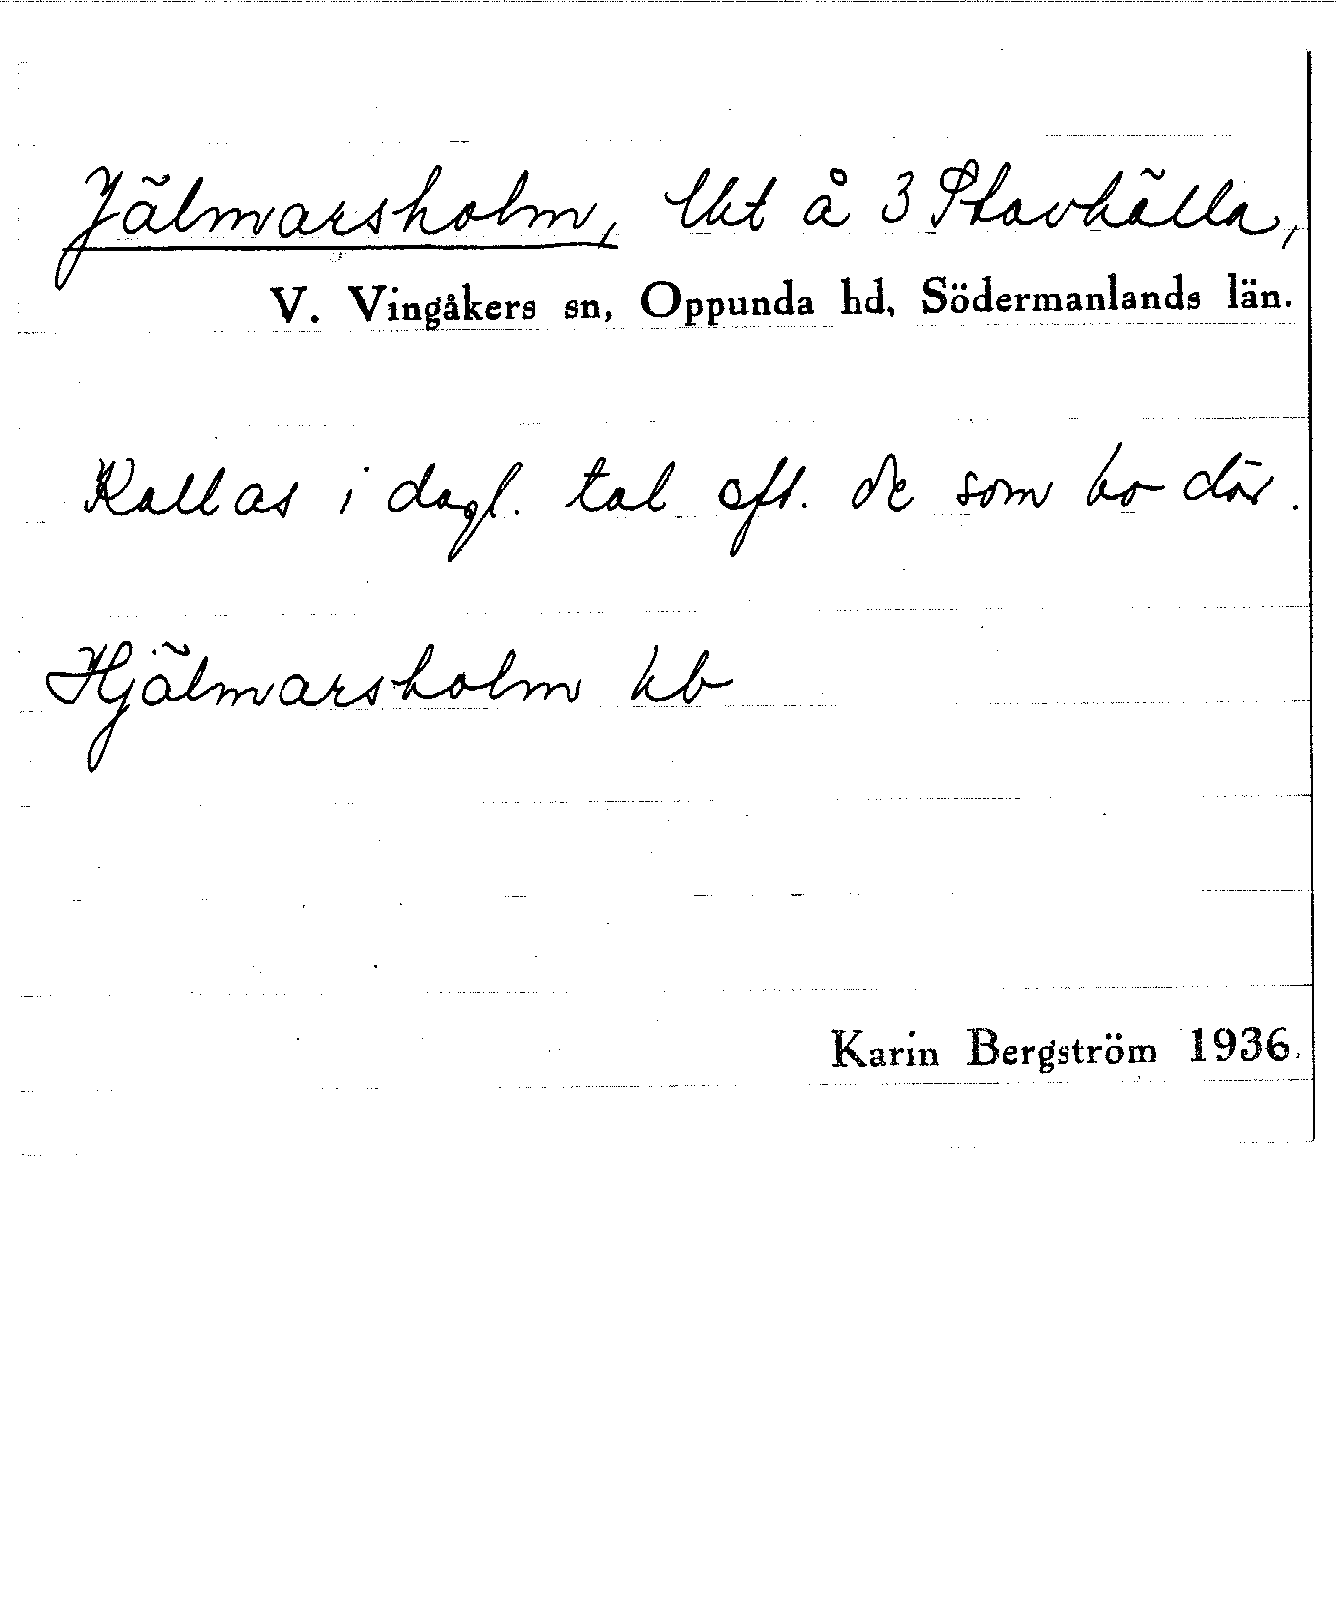 Jälmarsholm, lht å 3 Stavhälla,
V. Vingåkers sn, Oppunda hd, Södermanlands län.
Kallas i dagl. tal eft. de som bo där.
Hjälmarsholm kb
Karin Bergström 1936.